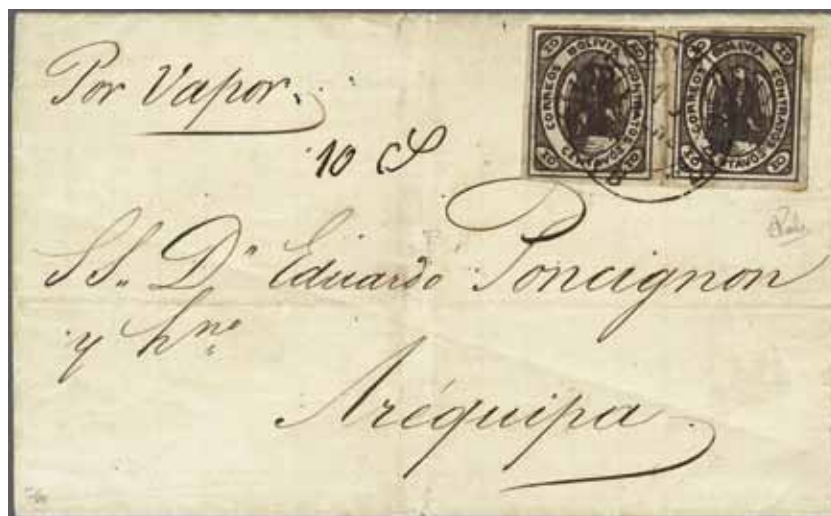 Por Vapor.
10 20 CORREOS BOLIVIA CONTRATOS CENTAVOS 10 20
10 20 CORREOS BOLIVIA CONTRATOS CENTAVOS 10 20
10 cs
SS. Dn Eduardo Poncignon
y hno
Aréquipa.